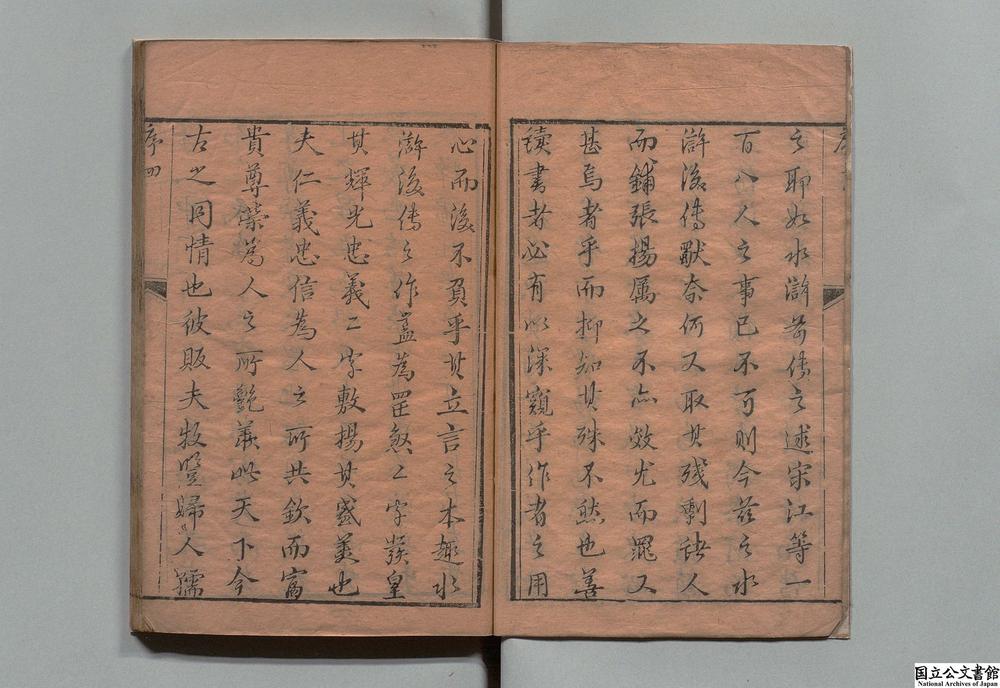 序
之耶如水滸前傳之述宋江等一
百八人之事已不可則今茲之水
滸後傳獸奈何又取其残剩諸人
而鋪張揚厲之不亦效尤而罪又
甚焉者乎而抑知其殊不然也善
讀書者必有以深窺乎作者之用
心而後不負乎其立言之本趣水
滸後傳之作蓋為罡煞二字發皇
其輝光忠義二字敷揚其盛美也
夫仁義忠信為人之所共欽而富
貴尊榮為人之所艷羨此天下今
古之同情也彼販夫牧豎婦人孺
序 四
国立公文書館
National Archives of Japan